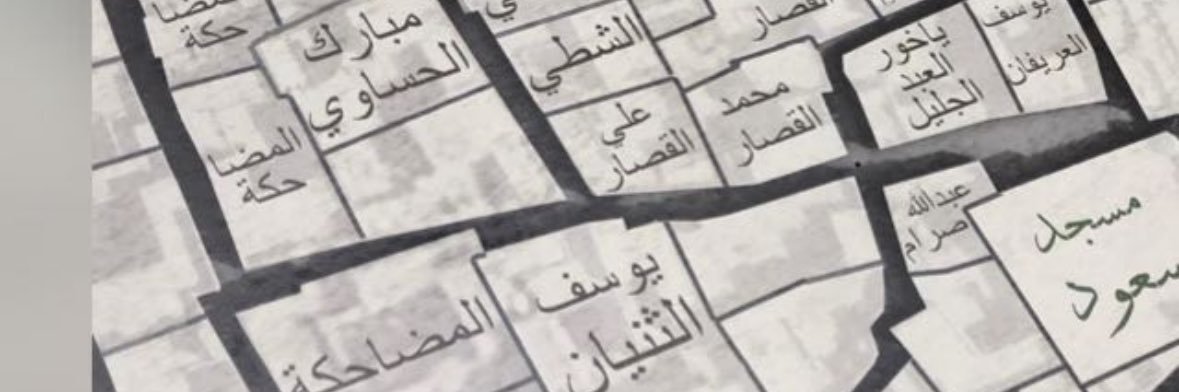 المضا
حكة
مبارك
الحساوي
ي
الشطي
القصار
ياخور
العبد
الجليل
يوسف
العريفان
علي
القصار
محمد
القصار
المضا
حكة
عبدالله
صرام
مسجد
سعود
يوسف
الثنيان
المضاحكة